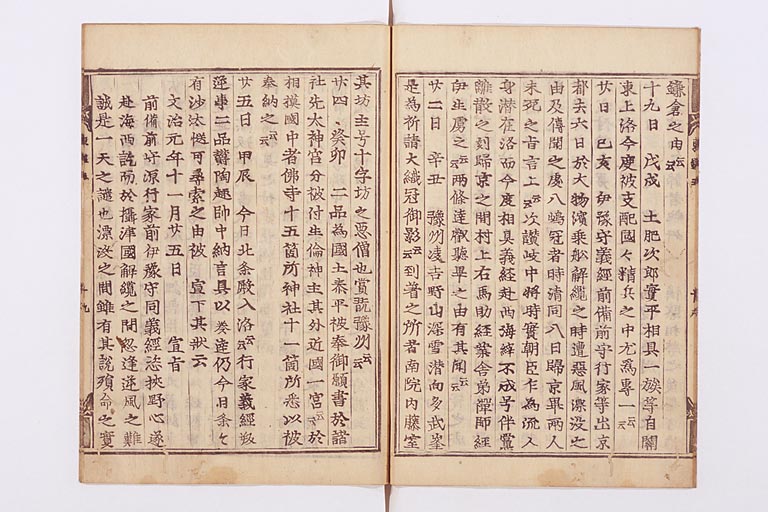 鎌倉之由云々
十九日 戊戌 土肥次郎實平相具一族等自關
東上洛今度被支配國々精兵之中尤為專一云々
廿日 己亥 伊豫守義經前備前守行家等出京
都去六日於大物濱乗船解纜之時遭惡風漂没之
由及傳聞之處八嶋冠者時清同八日歸京畢兩人
未死之旨言上云々次讃岐中將時實朝臣作為流人
身潜在洛而今度相具義經赴西海絆不成兮伴黨
離散之刻歸京之間村上右馬助經業舎弟禪師經
伊生虜之云々兩條達叡聽畢之由有其聞云々
廿二日 辛丑 豫州凌吉野山深雪潜向多武峯
是為祈請大織冠御影云々到著之所者南院内藤室
其坊主号十字坊之悪僧也賞翫豫州云々
廿四、癸卯 二品為國土泰平被奉御願書於諸
社先太神宮分被付生倫神主其外近國一宮云々於
相摸國中者佛寺十五箇所神社十一箇所悉以被
奉納之云々
廿五日 甲辰 今日北条殿入洛云々行家義經叛
逆事二品欝陶趣帥中納言具以奏達仍今日条々
有沙汰慥可尋索之由被 宣下其状云
文治元年十一月廿五日 宣旨
前備前守源行家前伊豫守同義經恣挾野心遂
赴海西訖而於攝津國解纜之間忽逢逆風之難
誠是一天之譴也漂没之間雖有其說殞命之實